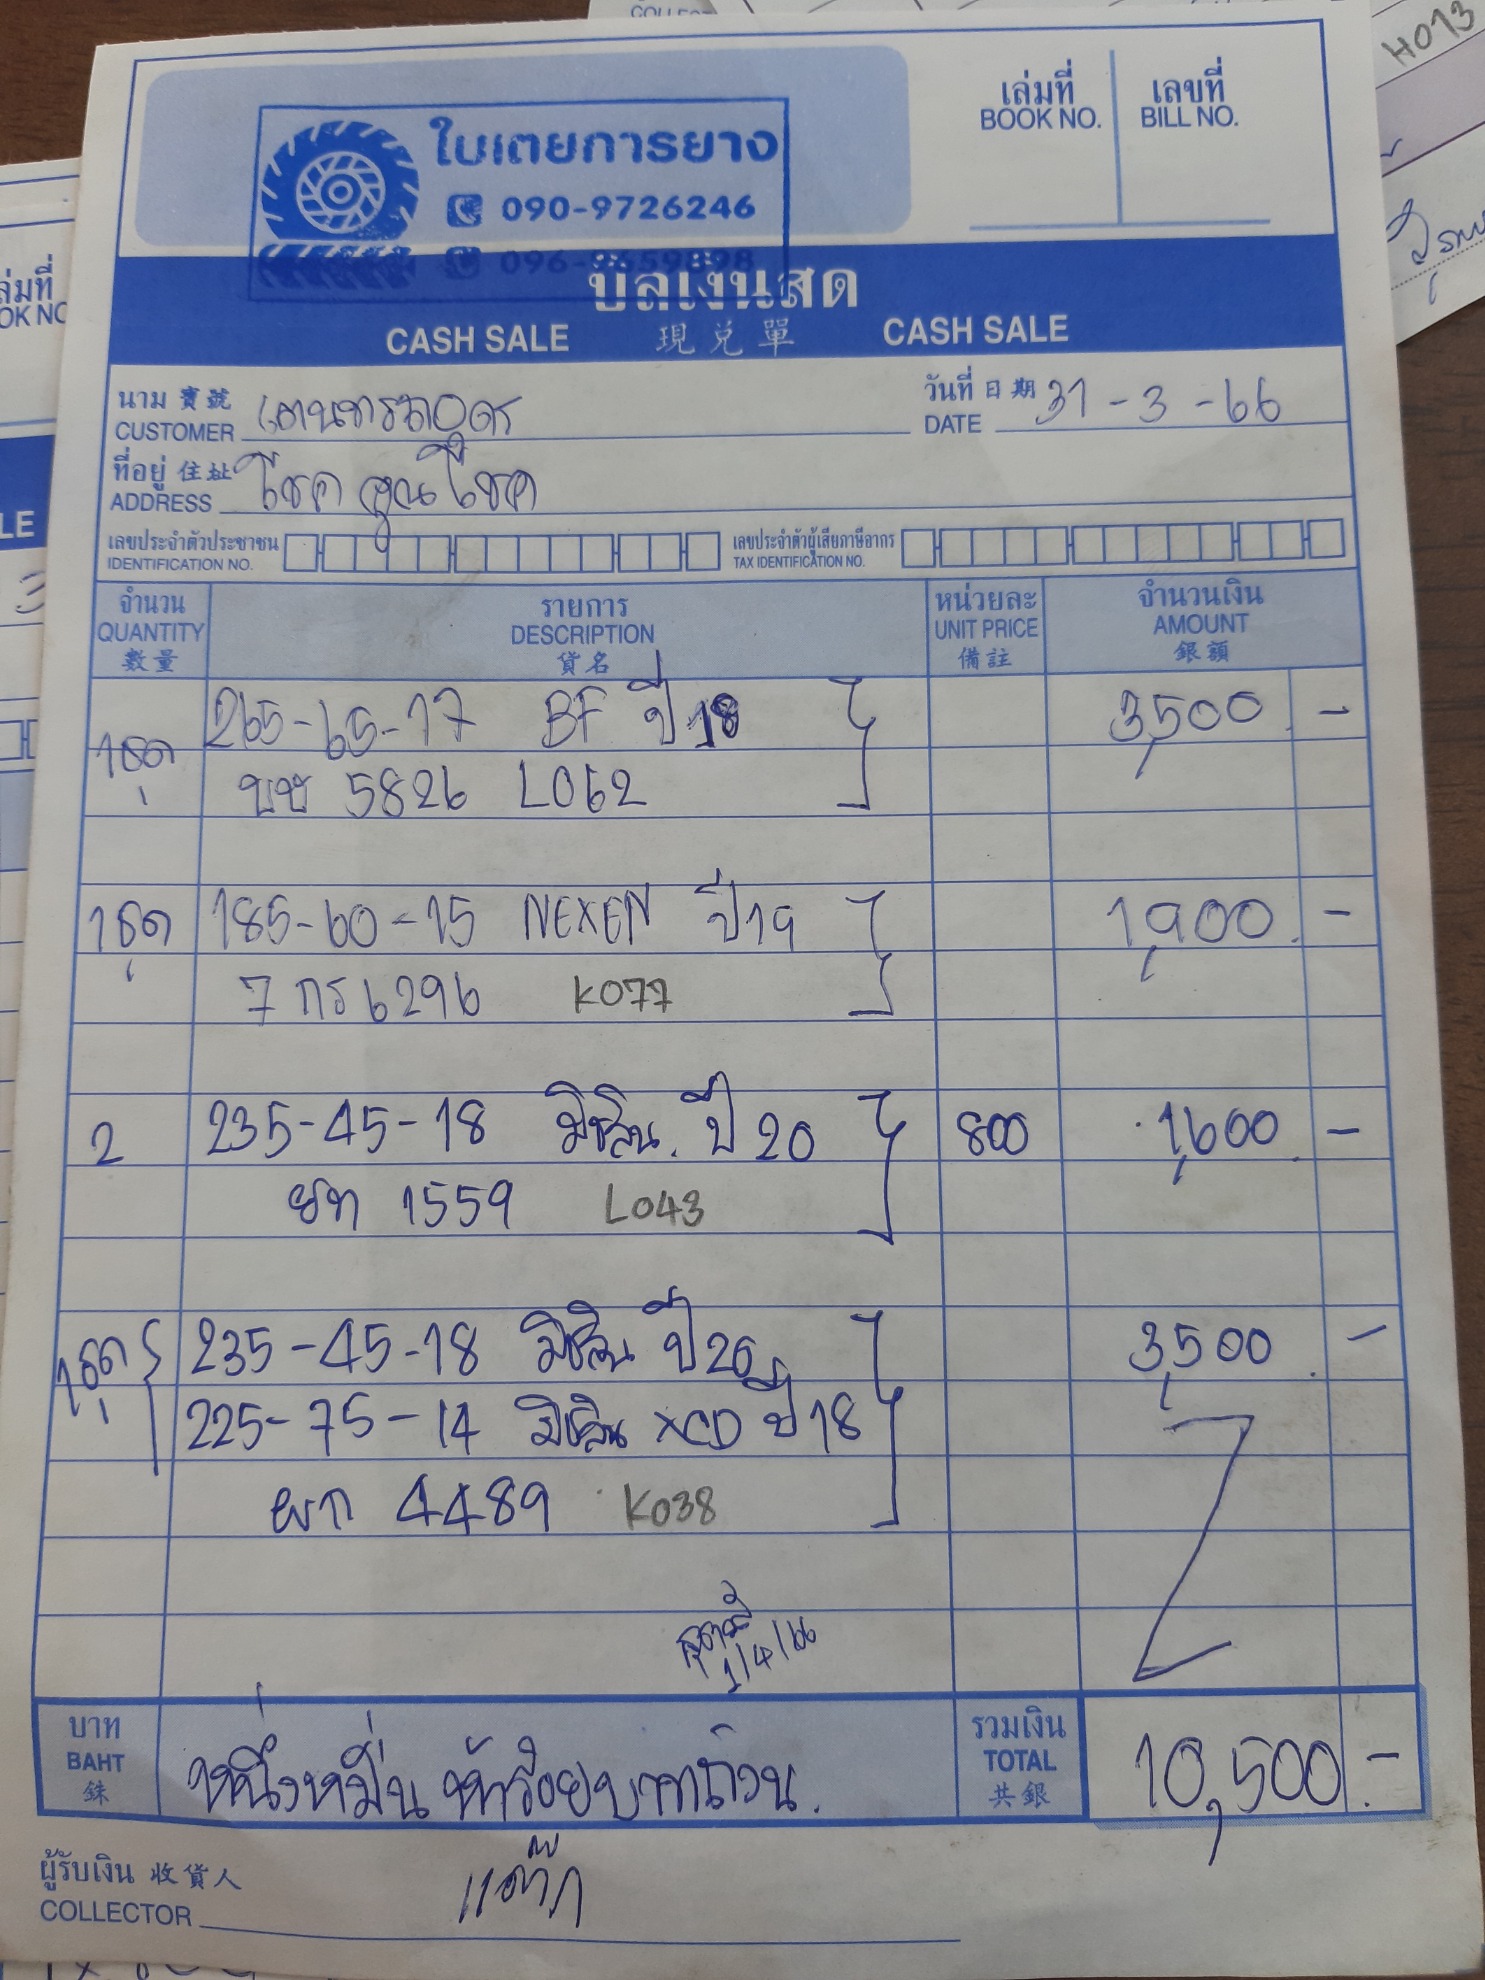 H013
เล่มที่ เลขที่
BOOK NO. BILL NO.
ใบเตยการยาง
090-9726246
บิลเงินสด
CASH SALE 現兌單 CASH SALE
นาม 寶號 วันที่ 日期 31-3-66
CUSTOMER DATE
ที่อยู่ 住址 โชค คูณโชค
ADDRESS
เลขประจำตัวประชาชน เลขประจำตัวผู้เสียภาษีอากร
IDENTIFICATION NO. TAX IDENTIFICATION NO.
จำนวน รายการ หน่วยละ จำนวนเงิน
QUANTITY DESCRIPTION UNIT PRICE AMOUNT
數量 貨名 備註 銀額
1ชุด 265-65-17 BF ปี 18 3,500 -
ขข 5826 L062
1ชุด 185-60-15 NEXEN ปี 19 1,900 -
7 กร 6296 K077
2 235-45-18 มิชลิน. ปี 20 800 1,600 -
ยท 1559 L043
1ชุด 235-45-18 มิชลิน ปี 20 3,500 -
225-75-14 มิชลิน XCD ปี 18
ผก 4489 K038
1/4/66
บาท หนึ่งหมื่นห้าร้อยบาทถ้วน. รวมเงิน 10,500.-
BAHT TOTAL
銖 共銀
ผู้รับเงิน 收貨人
COLLECTOR